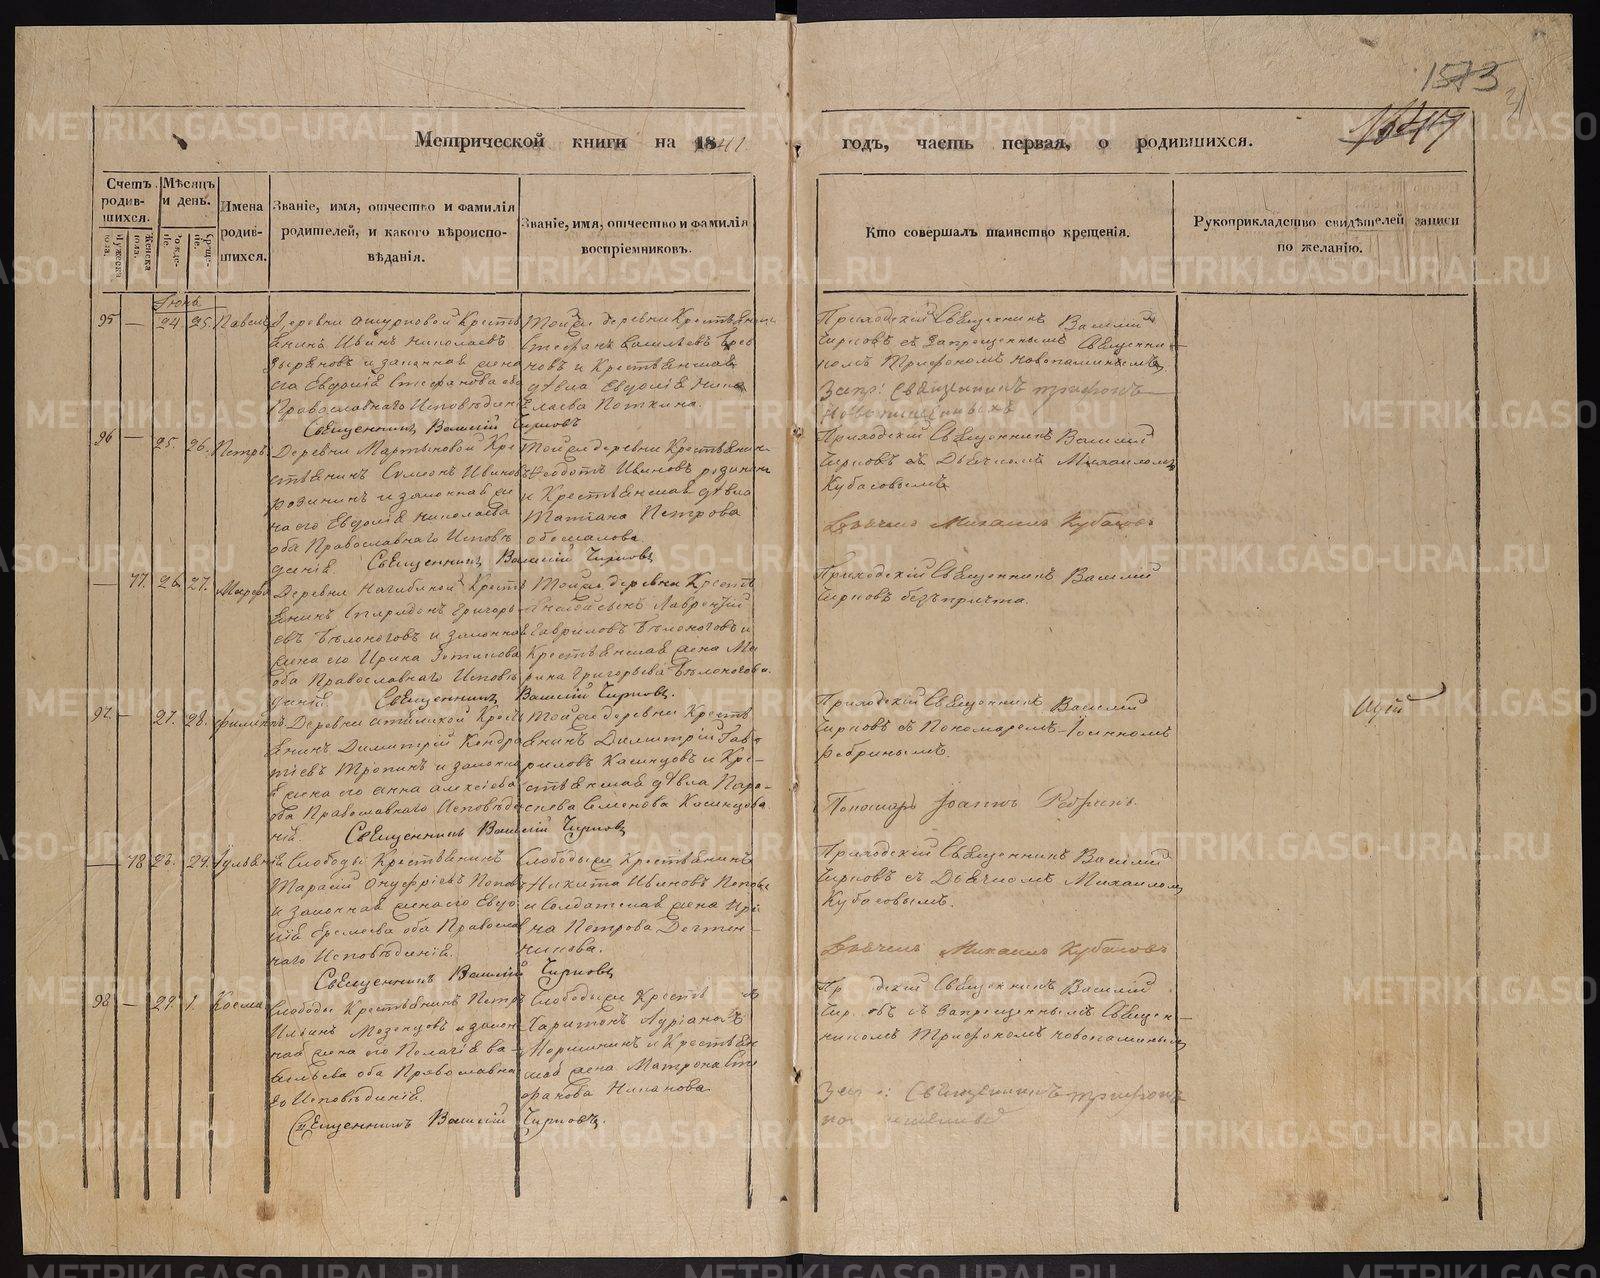 1573
31
Метрической книги на 1841
годъ, часть первая, о родившихся.
Счетъ родив-шихся.
Мѣсяцъ и день.
Имена родив-шихся.
Званіе, имя, отчество и фамилія родителей, и какого вѣроиспо-вѣданія.
Званіе, имя, отчество и фамилія воспріемниковъ.
Кто совершалъ таинство крещенія.
Рукоприкладство свидѣтелей записи по желанію.
Мужеска пола.
Женска пола.
Рожде-
Креще-
Іюнь
95 — 24. 25. Павелъ
Деревни Крестья
янинъ Иванъ Николаевъ
Зыряновъ и законная жена
его Евдокія Стефанова оба
Православнаго Исповѣдані
Священникъ Василій Чирковъ
Тойже деревни Крестьянинъ
Стефанъ Васильевъ
новъ и Крестьянская
дѣвка Евдокія Нико
лаева Поткина.
Приходскій Священникъ Василій
Чирковъ съ Запрещеннымъ Священни-
комъ Трифономъ
Запр: Священникъ Трифонъ
96 — 25. 26. Петръ
Деревни Мартыновой Кре
стьянинъ Симеонъ Ивановъ
Родинъ и законная же
на его Евдокія Николаева
оба Православнаго Исповѣ
данія. Священникъ Василій Чирковъ
Тойже деревни Крестьянинъ
Ѳеодотъ Ивановъ
и Крестьянская дѣвка
Татіана Петрова
Приходскій Священникъ Василій
Чирковъ съ Дьячкомъ Михаиломъ
Кубасовымъ
Дьячекъ Михаилъ Кубасовъ
— 77. 26. 27. Марфа
Деревни Нагибиной Кресть
янинъ Спиридонъ Григорь
евъ Бѣлоноговъ и законная
жена его Ирина
оба Православнаго Исповѣ
данія. Священникъ Василій Чирковъ.
Тойже деревни Крестья
Лаврентій
Гавриловъ Бѣлоноговъ и
Крестьянская жена Ма
рина Григорьева Бѣлоногова.
Приходскій Священникъ Василій
Чирковъ безъ причта.
97. — 27. 28. Филиппъ
Деревни Кресть
янинъ Димитрій Кондра
тіевъ Тропинъ и законна
я жена его Анна Алексіева
оба Православнаго Исповѣда
нія. Священникъ Василій Чирковъ
Тойже деревни Кресть
янинъ Димитрій Гав
риловъ Кашнцовъ и Кре-
стьянская дѣвка Пара-
скева Семенова Кашнцова.
Приходскій Священникъ Василій
Чирковъ съ Пономаремъ Іоанномъ
Ребринымъ.
Пономарь Іоаннъ Ребринъ.
— 78 23. 29. Іуліанія
Слободы Крестьянинъ
Тарасій Онуфріевъ Поповъ
и законная жена его Евдо
кія Еремеева оба Православ
наго Исповѣданія.
Священникъ Василій Чирковъ
Слободы же Крестьянинъ
Никита Ивановъ Поповъ
и Солдатская жена Ири
на Петрова Дегтен-
никова.
Приходскій Священникъ Василій
Чирковъ съ Дьячкомъ Михаиломъ
Кубасовымъ.
Дьячекъ Михаилъ Кубасовъ
98 — 29. 1. Косма
Слободы Крестьянинъ Петръ
Ильинъ Мезенцовъ и закон
ная жена его Пелагія Ва-
сильева оба Православна
го Исповѣданія.
Священникъ Василій Чирковъ.
Слободы же Крестья
Харитонъ Адріановъ
и Крестьян
ская жена Матрона Сте
фанова
Приходскій Священникъ Василій
Чирковъ съ Запрещеннымъ Священ-
никомъ Трифономъ
Запр: Священникъ Трифонъ